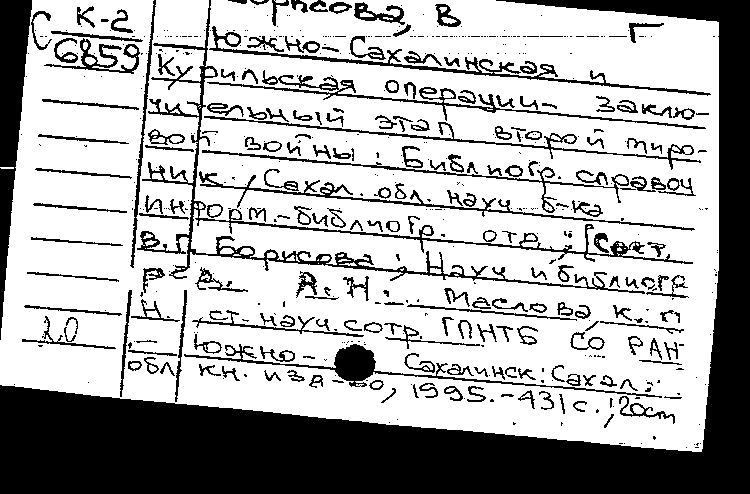 Борисова, В Г
С К-2
6859
Южно-Сахалинская и
Курильская операции- заклю-
чительный этап второй миро-
вой войны: Библиогр. справоч
ник. / Сахал. обл. науч. б-ка.
Информ.-библиогр. отд.; [Сост.
В.Г. Борисова; Науч и библиогр
А.Н. Маслова к. п
Н., ст. науч. сотр ГПНТБ СО РАН
20
- Южно- Сахалинск: Сахал.
обл кн. изд-во, 1995.-431с.; 20см